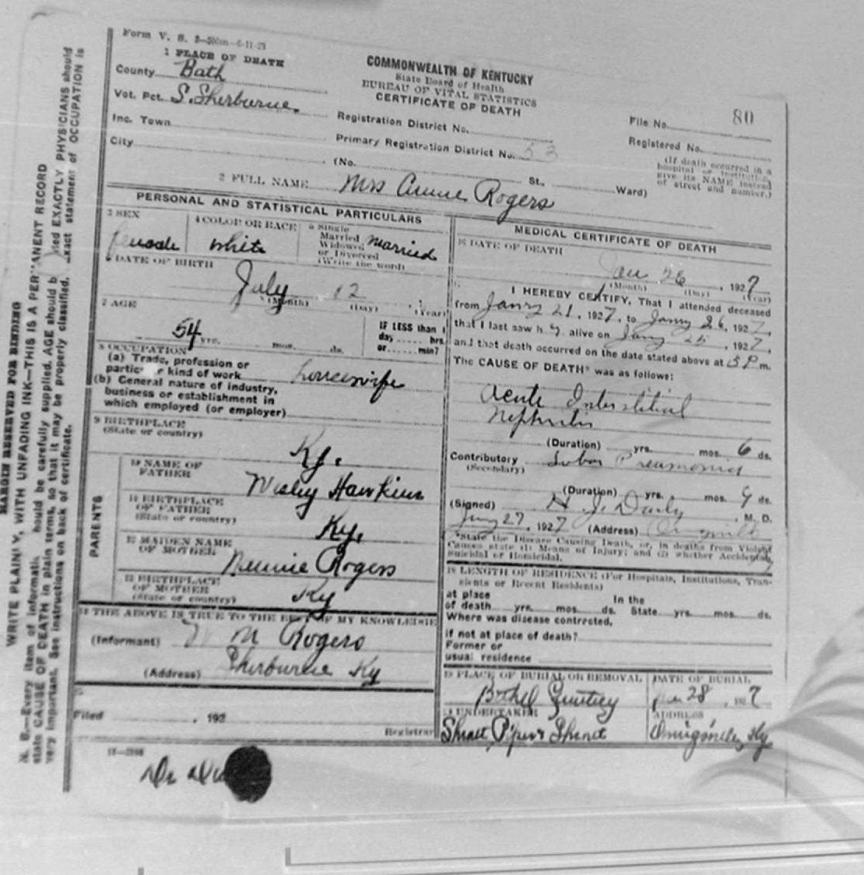 Form V. S.
1 PLACE OF DEATH
County Bath
Vot. Pct. S. Sherburne
Inc. Town
City
COMMONWEALTH OF KENTUCKY
State Board of Health
BUREAU OF VITAL STATISTICS
CERTIFICATE OF DEATH
Registration District No.
Primary Registration District No. 53
(No. St., Ward)
File No. 80
Registered No.
(If death occurred in a
hospital or institution,
give its NAME instead
of street and number.)
2 FULL NAME Mrs Annie Rogers
PERSONAL AND STATISTICAL PARTICULARS
3 SEX
female
4 COLOR OR RACE
white
5 Single
Married
Widowed
or Divorced
(Write the word)
married
6 DATE OF BIRTH
July 12
(Month) (Day) (Year)
7 AGE
54 yrs. mos. ds.
IF LESS than 1
day hrs.
or min?
8 OCCUPATION
(a) Trade, profession or
particular kind of work housewife
(b) General nature of industry,
business or establishment in
which employed (or employer)
9 BIRTHPLACE
(State or country)
Ky.
PARENTS
10 NAME OF
FATHER
Wesley Hawkins
11 BIRTHPLACE
OF FATHER
(State or country)
Ky.
12 MAIDEN NAME
OF MOTHER
Nennie Rogers
13 BIRTHPLACE
OF MOTHER
(State or country)
Ky
14 THE ABOVE IS TRUE TO THE BEST OF MY KNOWLEDGE
(Informant) W N Rogers
(Address) Sherburne Ky
15
Filed , 192
Registrar
MEDICAL CERTIFICATE OF DEATH
16 DATE OF DEATH
Jan 26, 1927
(Month) (Day) (Year)
I HEREBY CERTIFY, That I attended deceased
from Janry 21, 1927, to Janry 26, 1927,
that I last saw h alive on Janry 25, 1927,
and that death occurred on the date stated above at 5 P.m.
The CAUSE OF DEATH* was as follows:
Acute Interstitial
Nephritis
(Duration) yrs. mos. 6 ds.
Contributory Lobar Pneumonia
(Secondary)
(Duration) yrs. mos. 9 ds.
(Signed) H. J. Daily M. D.
Jany 27, 1927 (Address)
*State the Disease Causing Death, or, in deaths from Violent
Causes state (1) Means of Injury; and (2) whether Accidental,
Suicidal or Homicidal.
18 LENGTH OF RESIDENCE (For Hospitals, Institutions, Tran-
sients or Recent Residents)
at place In the
of death yrs. mos. ds. State yrs. mos. ds.
Where was disease contrected,
if not at place of death?
Former or
usual residence
19 PLACE OF BURIAL OR REMOVAL
Bethel
DATE OF BURIAL
Jan 28, 1927
20 UNDERTAKER
ADDRESS
Ky
MARGIN RESERVED FOR BINDING
WRITE PLAINLY, WITH UNFADING INK—THIS IS A PERMANENT RECORD
N. B.—Every item of information should be carefully supplied. AGE should be stated EXACTLY PHYSICIANS should
state CAUSE OF DEATH in plain terms, so that it may be properly classified. Exact statement of OCCUPATION is
very important. See instructions on back of certificate.